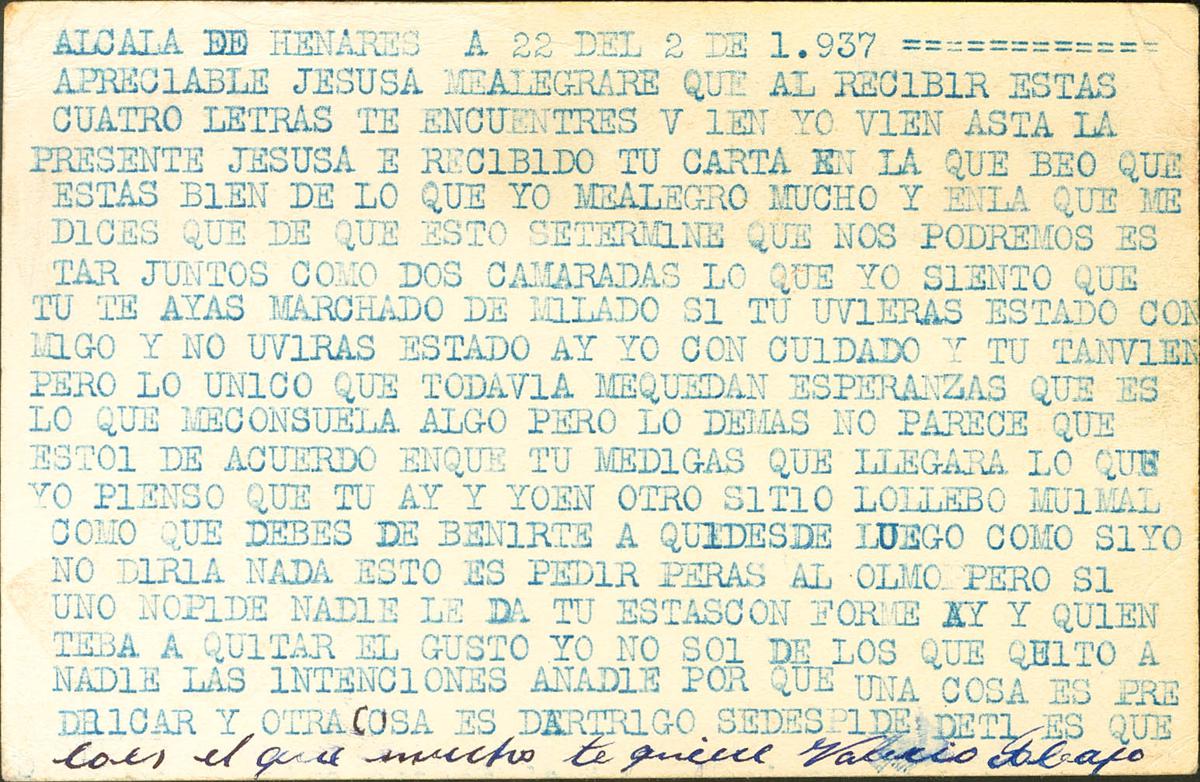 ALCALA DE HENARES A 22 DEL 2 DE 1.937 ============
APREC1ABLE JESUSA MEALEGRARE QUE AL REC1B1R ESTAS
CUATRO LETRAS TE ENCUENTRES V 1EN YO V1EN ASTA LA
PRESENTE JESUSA E REC1B1DO TU CARTA EN LA QUE BEO QUE
ESTAS B1EN DE LO QUE YO MEALEGRO MUCHO Y ENLA QUE ME
D1CES QUE DE QUE ESTO SETERM1NE QUE NOS PODREMOS ES
TAR JUNTOS COMO DOS CAMARADAS LO QUE YO S1ENTO QUE
TU TE AYAS MARCHADO DE M1LADO S1 TU UV1ERAS ESTADO CON
M1GO Y NO UV1RAS ESTADO AY YO CON CU1DADO Y TU TANV1EN
PERO LO UN1CO QUE TODAV1A MEQUEDAN ESPERANZAS QUE ES
LO QUE MECONSUELA ALGO PERO LO DEMAS NO PARECE QUE
ESTO1 DE ACUERDO ENQUE TU MED1GAS QUE LLEGARA LO QUE
YO P1ENSO QUE TU AY Y YOEN OTRO S1T1O LOLLEBO MU1MAL
COMO QUE DEBES DE BEN1RTE A QU1DESDE LUEGO COMO S1YO
NO D1R1A NADA ESTO ES PED1R PERAS AL OLMO PERO S1
UNO NOP1DE NAD1E LE DA TU ESTASCON FORME AY Y QU1EN
TEBA A QU1TAR EL GUSTO YO NO SO1 DE LOS QUE QE1TO A
NAD1E LAS 1NTENC1ONES ANAD1E POR QUE UNA COSA ES PRE
DR1CAR Y OTRACOSA ES DARTR1GO SEDESP1DE DET1 ES QUE
loes el que mucho te quiere Valerio